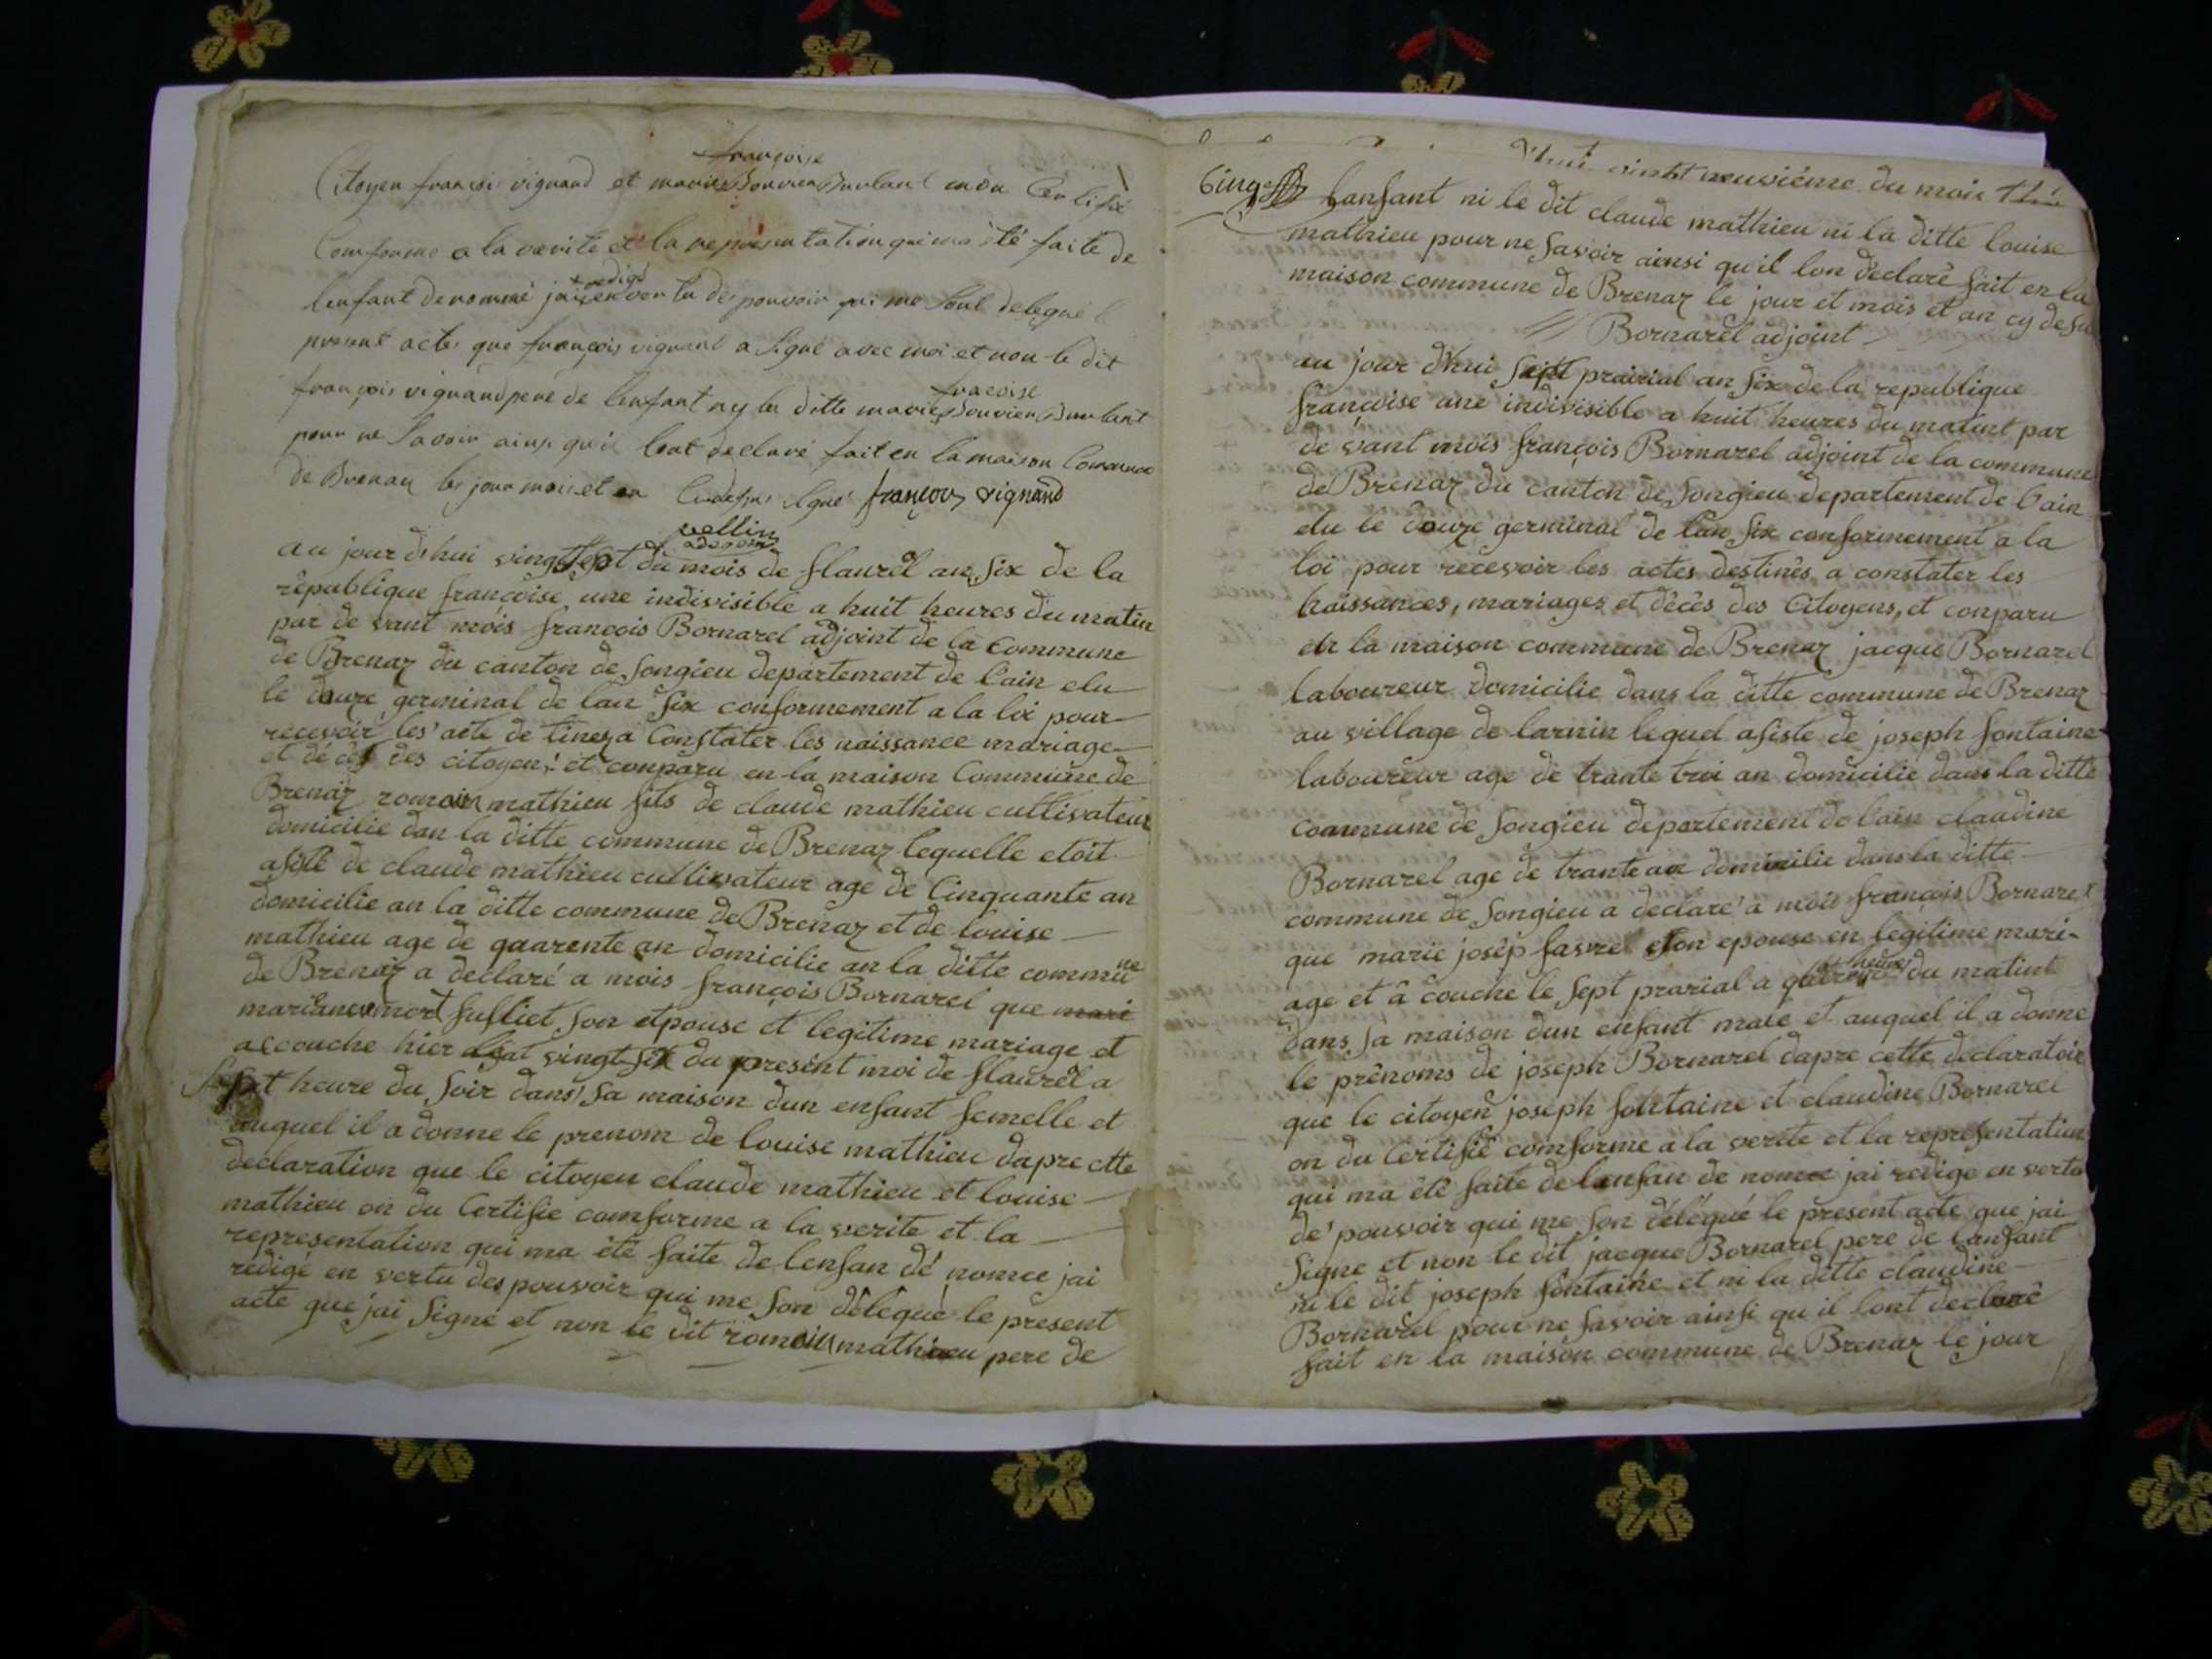 françoise
Citoyen françois vignand et marie Bouvier Burlant mon Certifié
Comforme a la verité et la representation qui ma été faite de
lenfant denommé jai redigé en vertu des pouvoir qui me sont delegué le
present acte que françois vignand a signé avec moi et non le dit
françois vignand pere de lenfant ny la ditte marie fracoise Bouvier Burlant
pour ne savoir ainsi qu'il lont declaré fait en la maison Commune
de Brenaz les jour mois et an Cy dessus signé françois vignand
vellin
adjoint
au jour d'hui vingt sept du mois de flaurêl an six de la
republique francoise une indivisible a huit heures du matin
par de vant mois francois Bornarel adjoint de la Commune
de Brenaz du canton de songieu departement de l'ain elu
le douze germinal de lan six conformement a la loi pour
recevoir les acte de tinez a Constater les naissance mariage
et décès des citoyens et conparu en la maison Commune de
Brenaz romain mathieu fils de claude mathieu cultivateur
domicilie dan la ditte commune de Brenaz lequelle etoit
asisté de claude mathieu cultivateur age de Cinquante an
domicilie an la ditte commune de Brenaz et de louise
mathieu age de quarente an domicilie an la ditte commune
de Brenaz a declaré a mois françois Bornarel que mari
mariane mort fulliet son etpouse et legitime mariage et
accouche hier vingt six du present moi de flaurêl a
sept heure du soir dans sa maison dun enfant femelle et
auquel il a donne le prenom de louise mathieu dapre cette
declaration que le citoyen claude mathieu et louise
mathieu on du Certifie comforme a la verite et la
representation qui ma été faite de lenfan dé nomee jai
redige en vertu des pouvoir qui me son délégué le present
acte que jai signe et non le dit romain mathieu pere de
vint neuvième du mois
lanfant ni le dit claude mathieu ni la ditte louise
mathieu pour ne savoir ainsi qu'il lon déclaré fait en la
maison commune de Brenaz le jour et mois et an cy desu
Bornarel adjoint
au jour d'hui sept prairial an six de la republique
françoise une indivisible a huit heures du matint par
de vant mois françois Bornarel adjoint de la commune
de Brenaz du canton de songieu departement de l'ain
elu le douze germinal de lan six conformement a la
loi pour recevoir les actes destinés a constater les
naissances, mariages et décès des Citoyens, et conparu
en la maison commune de Brenaz jacque Bornarel
laboureur domicilie dans la ditte commune de Brenaz
au village de larnin lequel asiste de joseph fontaine
laboureur age de trante troi an domicilie dans la ditte
commune de songieu departement de lain claudine
Bornarel age de trante an domicilie dans la ditte
commune de songieu a declaré a mois françois Bornarel
que marie josep favre son epouse en legitime mari-
age et a couche le sept prarial a quatre heures du matint
dans sa maison dun enfant male et auquel il a donne
le prênoms de joseph Bornarel dapre cette declaratoin
que le citoyen joseph fontaine et claudine Bornarel
on du Certifié comforme a la verite et la representation
qui ma été faite de lanfan de nomee jai redige en vertu
dé pouvoir qui me son délégué le present acte que jai
signe et non le dit jacque Bornarel pere de lanfant
ni le dit joseph fontaine et ni la ditte claudine
Bornarel pour ne savoir ainsi qu il lont declaré
fait en la maison commune de Brenaz le jour